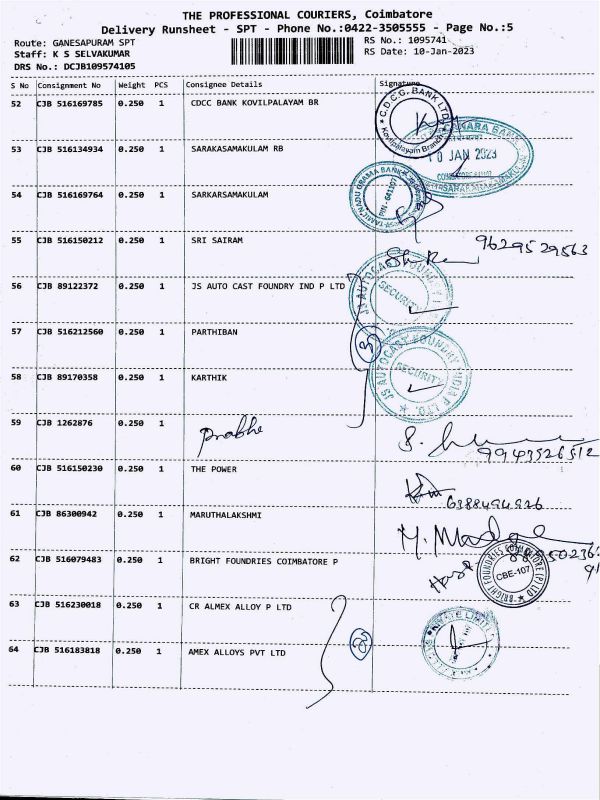 THE PROFESSIONAL COURIERS, Coimbatore
Delivery Runsheet - SPT - Phone No.:0422-3505555 - Page No.:5
Route: GANESAPURAM SPT
RS No.: 1095741
Staff: K S SELVAKUMAR
RS Date: 10-Jan-2023
DRS No.: DCJB109574105
S No Consignment No Weight PCS Consignee Details Signature
52 CJB 516169785 0.250 1 CDCC BANK KOVILPALAYAM BR
C.D.C.C. BANK LTD
Kovilpalayam Branch
53 CJB 516134934 0.250 1 SARAKASAMAKULAM RB
10 JAN 2023
54 CJB 516169764 0.250 1 SARKARSAMAKULAM
TAMILNADU GRAMA BANK
PIN - 641107
55 CJB 516150212 0.250 1 SRI SAIRAM
9629529563
56 CJB 89122372 1 0.250 1 JS AUTO CAST FOUNDRY IND P LTD
JS AUTOCAST FOUNDRY
SECURITY
57 CJB 516212560 0.250 1 PARTHIBAN
3
58 CJB 89170358 0.250 1 KARTHIK
JS AUTOCAST FOUNDRY INDIA P LTD.
SECURITY
59 CJB 1262876 0.250 1 Prabhe
9943526512
60 CJB 516150230 0.250 1 THE POWER
6388494926
61 CJB 86300942 0.250 1 MARUTHALAKSHMI
62 CJB 516079483 0.250 1 BRIGHT FOUNDRIES COIMBATORE P
BRIGHT FOUNDRIES COIMBATORE (P) LTD
CBE-107
63 CJB 516230018 0.250 1 CR ALMEX ALLOY P LTD
64 CJB 516183818 0.250 1 AMEX ALLOYS PVT LTD